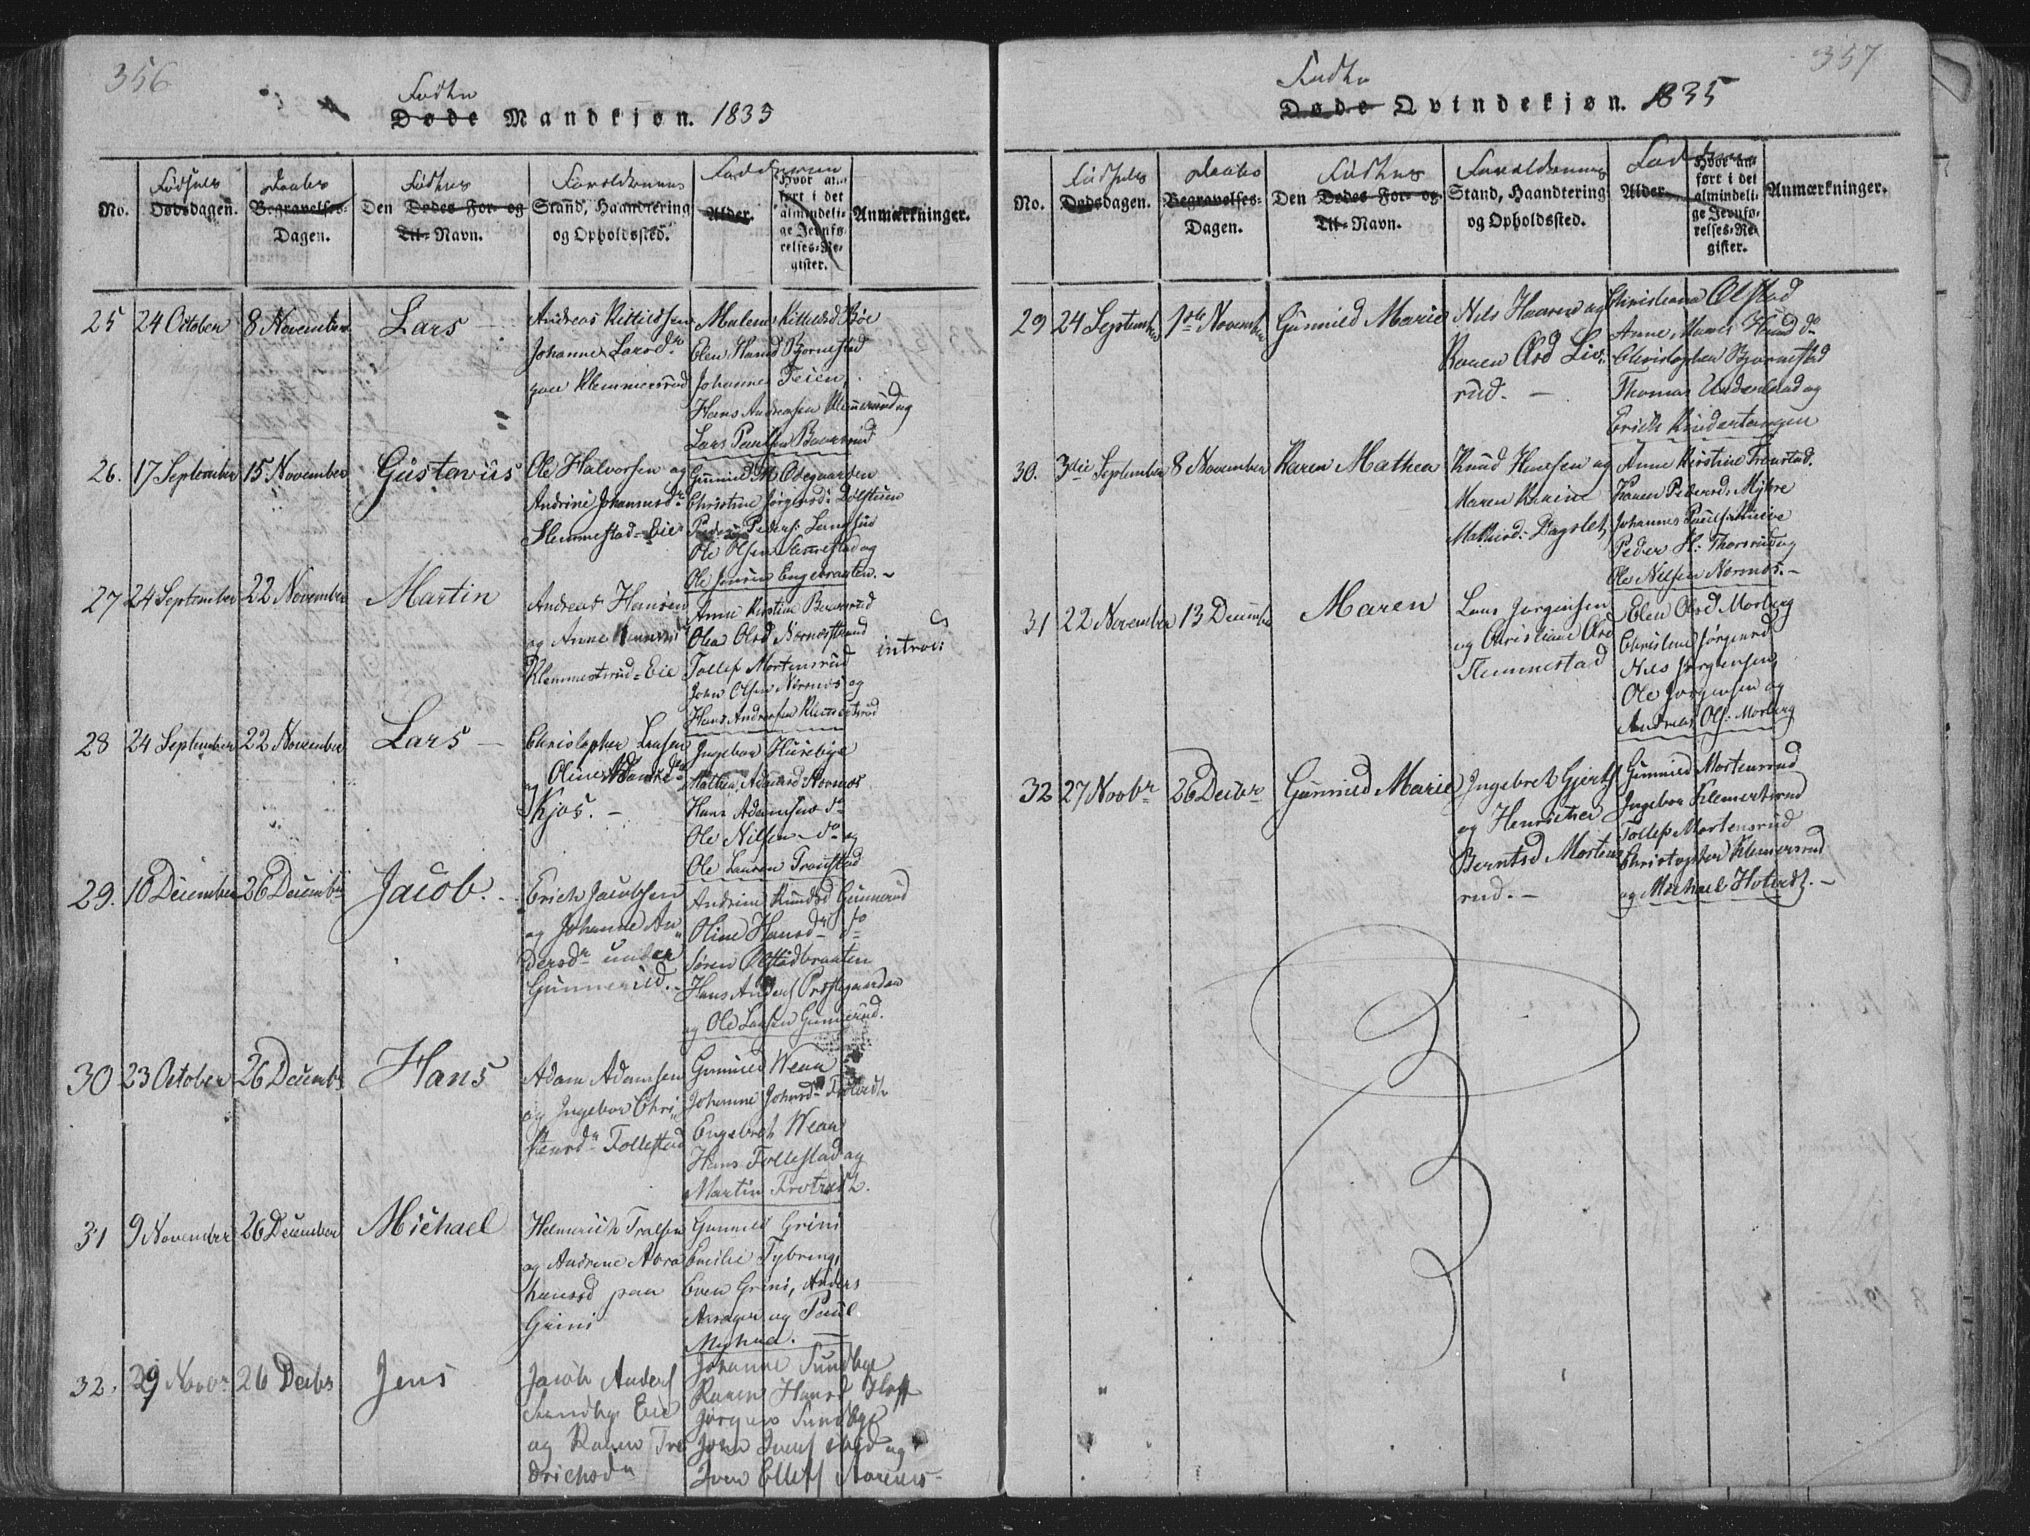 356
Fødte
Døde Mandkjøn. 1835
No.
Fødsels
Dødsdagen.
Daabs
Begravelses-
Dagen.
Fødtes
Den Dødes For- og
Til-Navn.
Forældrenes
Stand, Haandtering
og Opholdssted.
Fadderne
Alder.
Hvor an-
ført i det
almindeli-
ge Jevnfø-
relses-Re-
gister.
Anmærkninger.
25 24 October 8 November Lars
Andreas Kittilsen
Johanne Larsdr
paa Klemmetsrud
Malene Kittilsd Bøe
Elen Hansd Bjørnestad
Johannes Teien,
Hans Andreasen Klemmetsrud og
Lars Paulsen Baarsrud
26. 17 September 15 November Gustavus
Ole Halvorsen og
Andrine Johannesdr
Slemmestad-Eie
Gunnild M. Ødegaarden
Christine Jørgensd:
Peder Peders:
Ole Olsen Slemestad og
Ole Jensen Engebraaten. -
27 24 September 22 November Martin
Andreas Hansen
og Anne
Klemmetsrud-Eie
Anne Kirstine Baarsrud
Olea Olsd Nærnesstrand
Tollef Mortensrud
John Olsen Nærnes og
Hans Andreasen Klemmetsrud
introd:
28 24 September 22 November Lars -
Christopher Larsen
og Oline Adamsd
Kjos. -
Ingebor Huseby
Mathea Adamsd Nærnes
Hans Adamsen do
Ole Nilsen - do og
Ole Larsen Trønstad
29. 10 December 26 Decembr Jacob.
Erich Jacobsen
og Johanne An-
dersdr under
Gunnerud. -
Andrine Knudsd Gunnerud
Oline Hansdr do
Søren Ølstadbraaten
Hans Anders Præstegaarden
og Ole Larsen Gunnerud.
30 23 October 26 Decembr Hans
Adam Adamsen
og Ingebor Chri-
stensdr Follestad
Gunnild Wear
Johanne Johnsdr
Engebret Wear
Hans Follestad og
Martin
31 9 November 26 December Michael
Helmerich Tralsen
og Andrine Abra
hamsd paa
Grini
Gunnild Grini
Emilie Tybring,
Even Grini, Anders
Aasager og Paul
Myhra. -
32. 29 Novbr 26 Decbr Jens
Jacob Anders
Sundby Eie
og Karen Fre
drichsdr
Johanne Sundbye
Karen Hansd Hoff
Jørgen Sundbye
John og
Iver Ellefs Nærnes
357
Fødte
Døde Qvindekjøn. 1835
No.
Fødsels
Dødsdagen.
Daabs
Begravelses-
Dagen.
Fødtes
Den Dødes For- og
Til-Navn.
Forældrenes
Stand, Haandtering
og Opholdssted.
Fadderne
Alder.
Hvor an-
ført i det
almindeli-
ge Jevnfø-
relses-Re-
gister.
Anmærkninger.
29 24 September 1ste November Gunnild Marie
Nils Haavensen og
Karen Olsd Lie-
rud. -
Christiana Ølstad
Anne Marie do
Christopher Bjørnestad
Thomas Underland og
Erich Kinnertangen
30. 3die September 8 November Karen Mathea
Knud Hansen og
Maren Karine
Mathisd: Dagslet,
Anne Kirstine Trønstad.
Karen Pedersd: Myhre
Johannes Paulsen
Peder H: Thorsrud og
Ole Nilsen Nærnes. -
31 22 November 13 December Maren
Lars Jørgensen
og Christiane Olsd
Slemmestad
Elen Olsd Morberg
Christine Jørgensd
Nils Jørgensen,
Ole Jørgensen og
Andreas Ols: Morberg
32 27 Novbr 26 Decbr Gunnild Marie
Ingebret Gjerts
og Henriche
Berntsd Mortens
rud. -
Gunnild Mortensrud
Ingebor Klemmetsrud
Tollef Mortensrud
Christopher Klemmetsrud
og Michael Holtedt. -